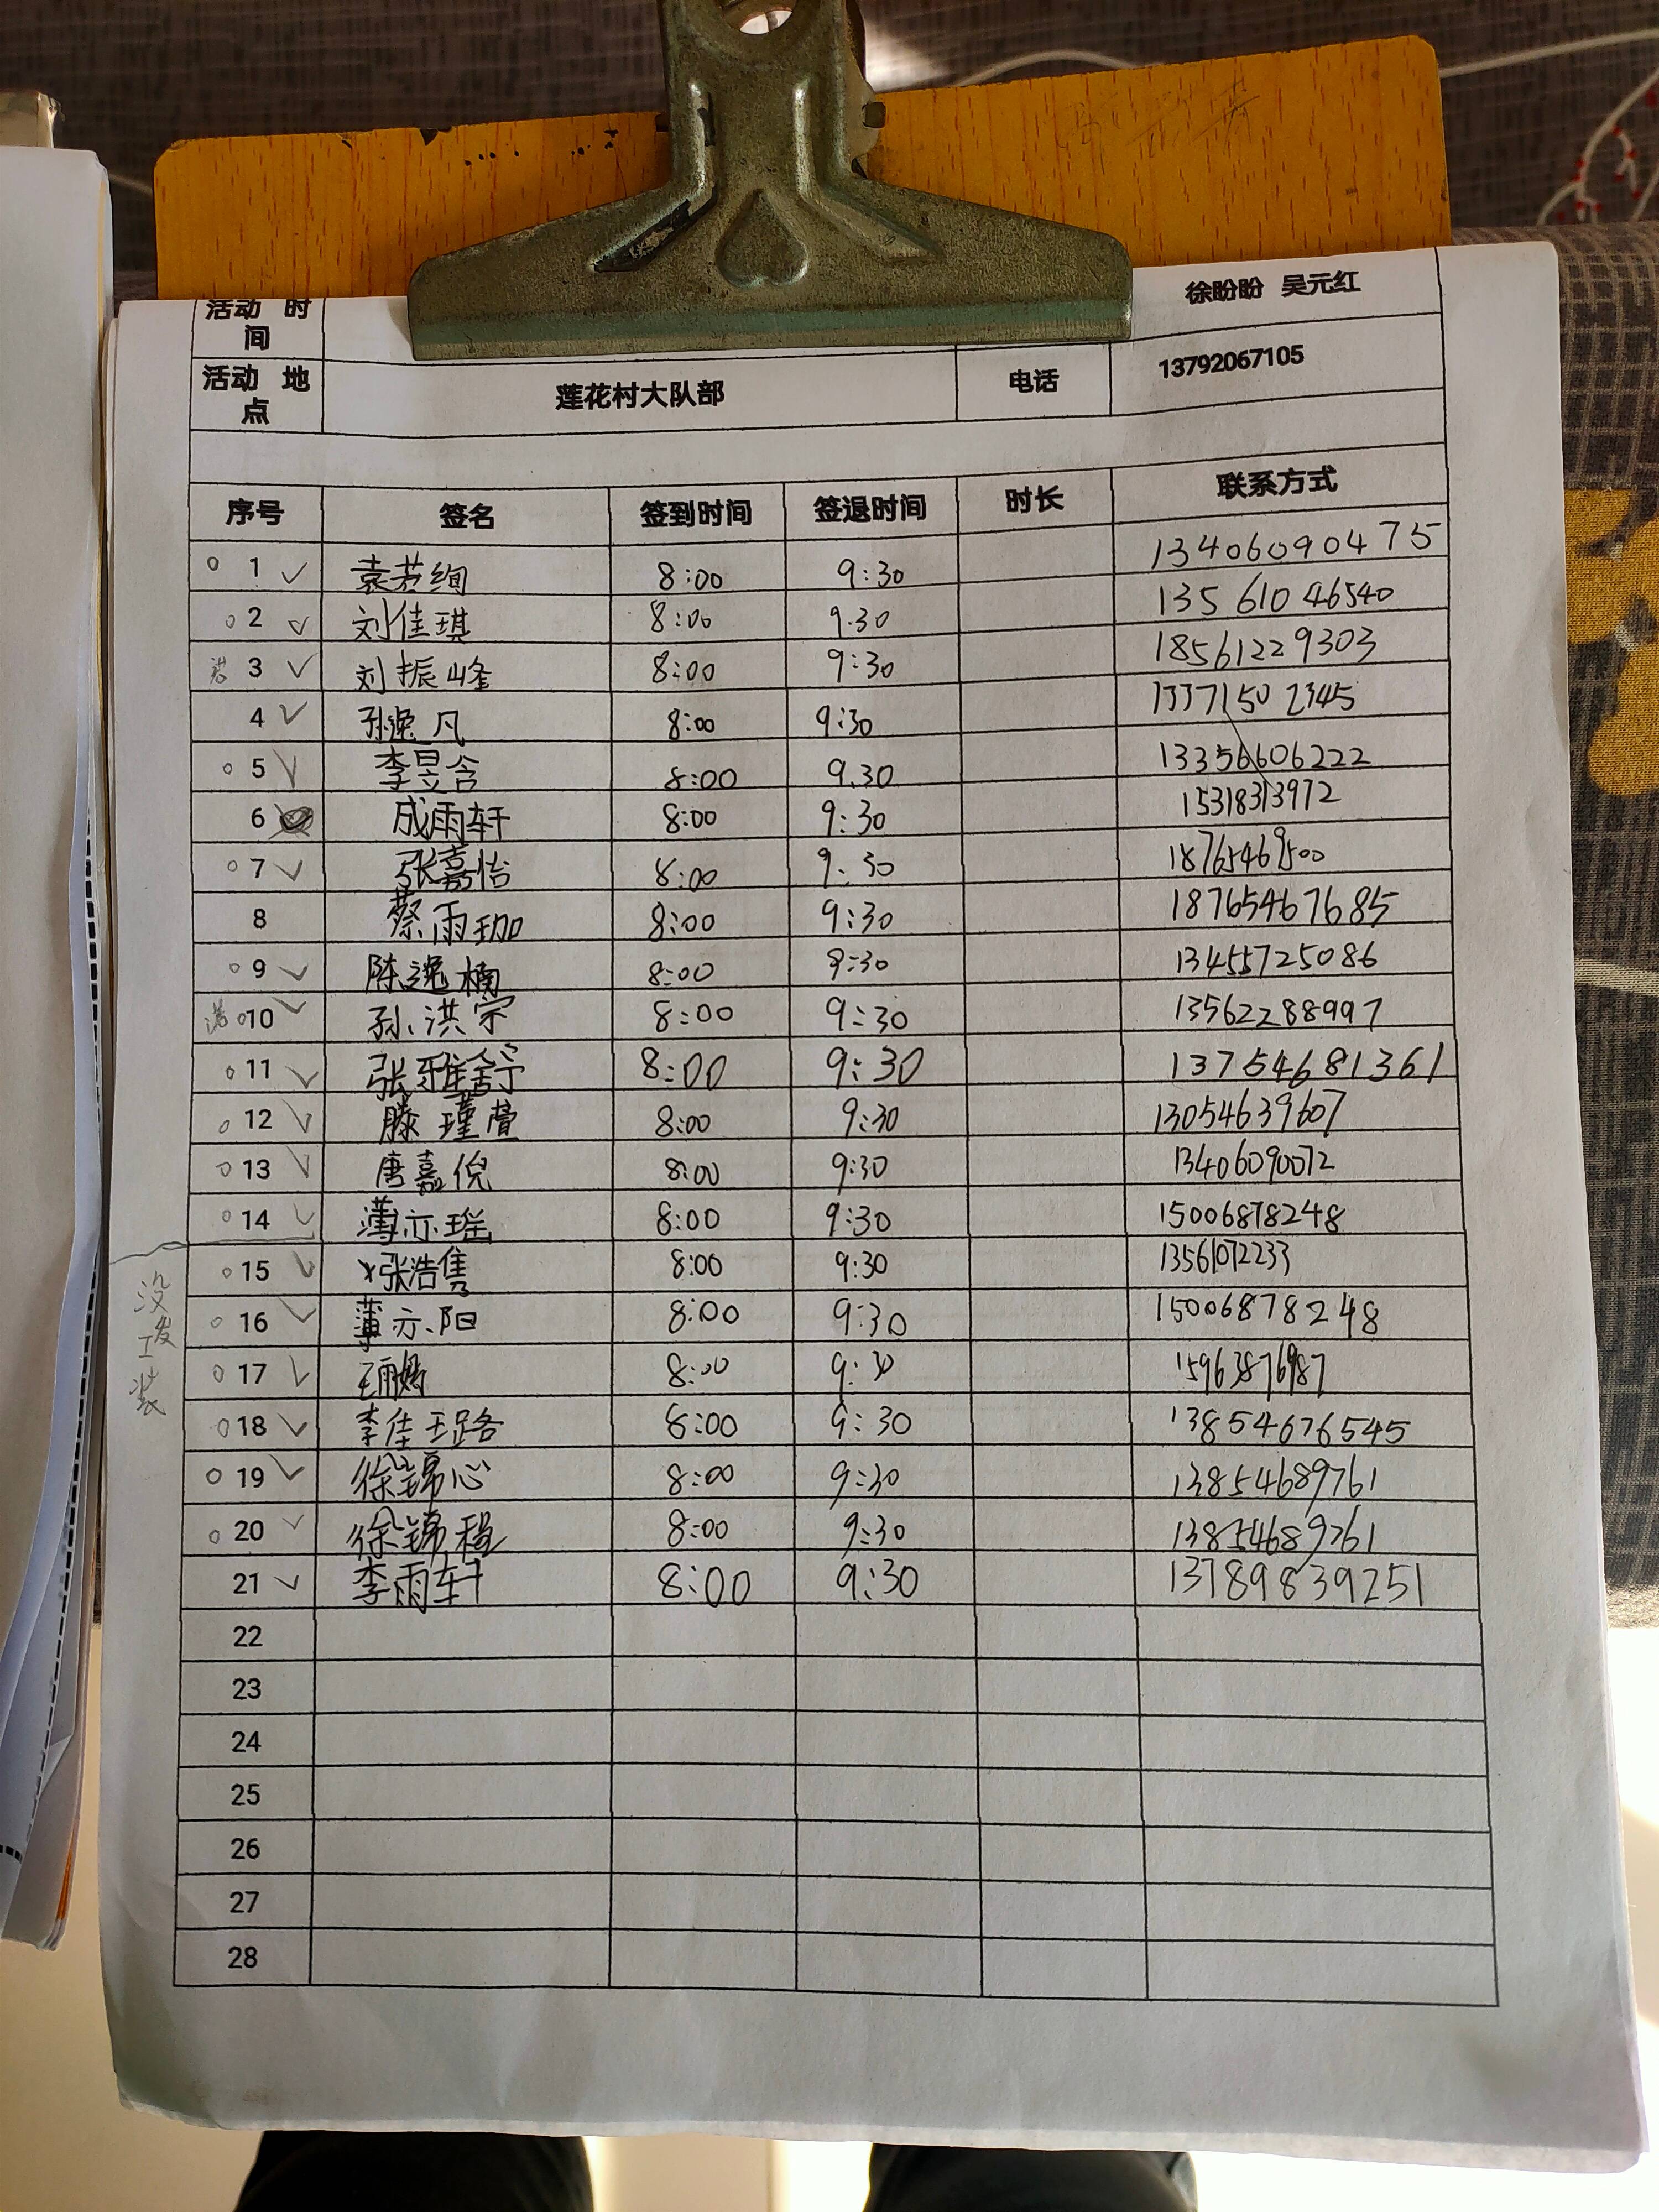 徐盼盼 吴元红
活动 时间
活动 地点 莲花村大队部 电话 13792067105
序号 签名 签到时间 签退时间 时长 联系方式
1 ✓ 袁若绚 8:00 9:30 13406090475
2 ✓ 刘佳琪 8:00 9.30 13561046540
3 ✓ 刘振峰 8:00 9:30 18561229303
4 ✓ 孙逸凡 8:00 9:30 13371502345
5 ✓ 李昱含 8:00 9.30 13356606222
6 成雨轩 8:00 9:30 15318313972
7 ✓ 张嘉怡 8:00 9:30 18765469500
8 蔡雨珈 8:00 9:30 18765467685
9 ✓ 陈逸楠 8:00 9:30 13455725086
10 ✓ 孙洪宇 8:00 9:30 13562288997
11 ✓ 张雅舒 8:00 9:30 13754681361
12 ✓ 滕瑾萱 8:00 9:30 13054639607
13 ✓ 唐嘉倪 8:00 9:30 13406090072
14 ✓ 薄亦瑶 8:00 9:30 15006878248
15 ✓ 张浩隽 8:00 9:30 13561072233
16 ✓ 薄亦阳 8:00 9:30 15006878248
17 ✓ 8:00 9:30 15963876987
18 ✓ 李佳璐 8:00 9:30 13854676545
19 ✓ 徐锦心 8:00 9:30 13854689761
20 ✓ 徐锦程 8:00 9:30 13854689761
21 ✓ 李雨轩 8:00 9:30 13789839251
22
23
24
25
26
27
28
没发工装